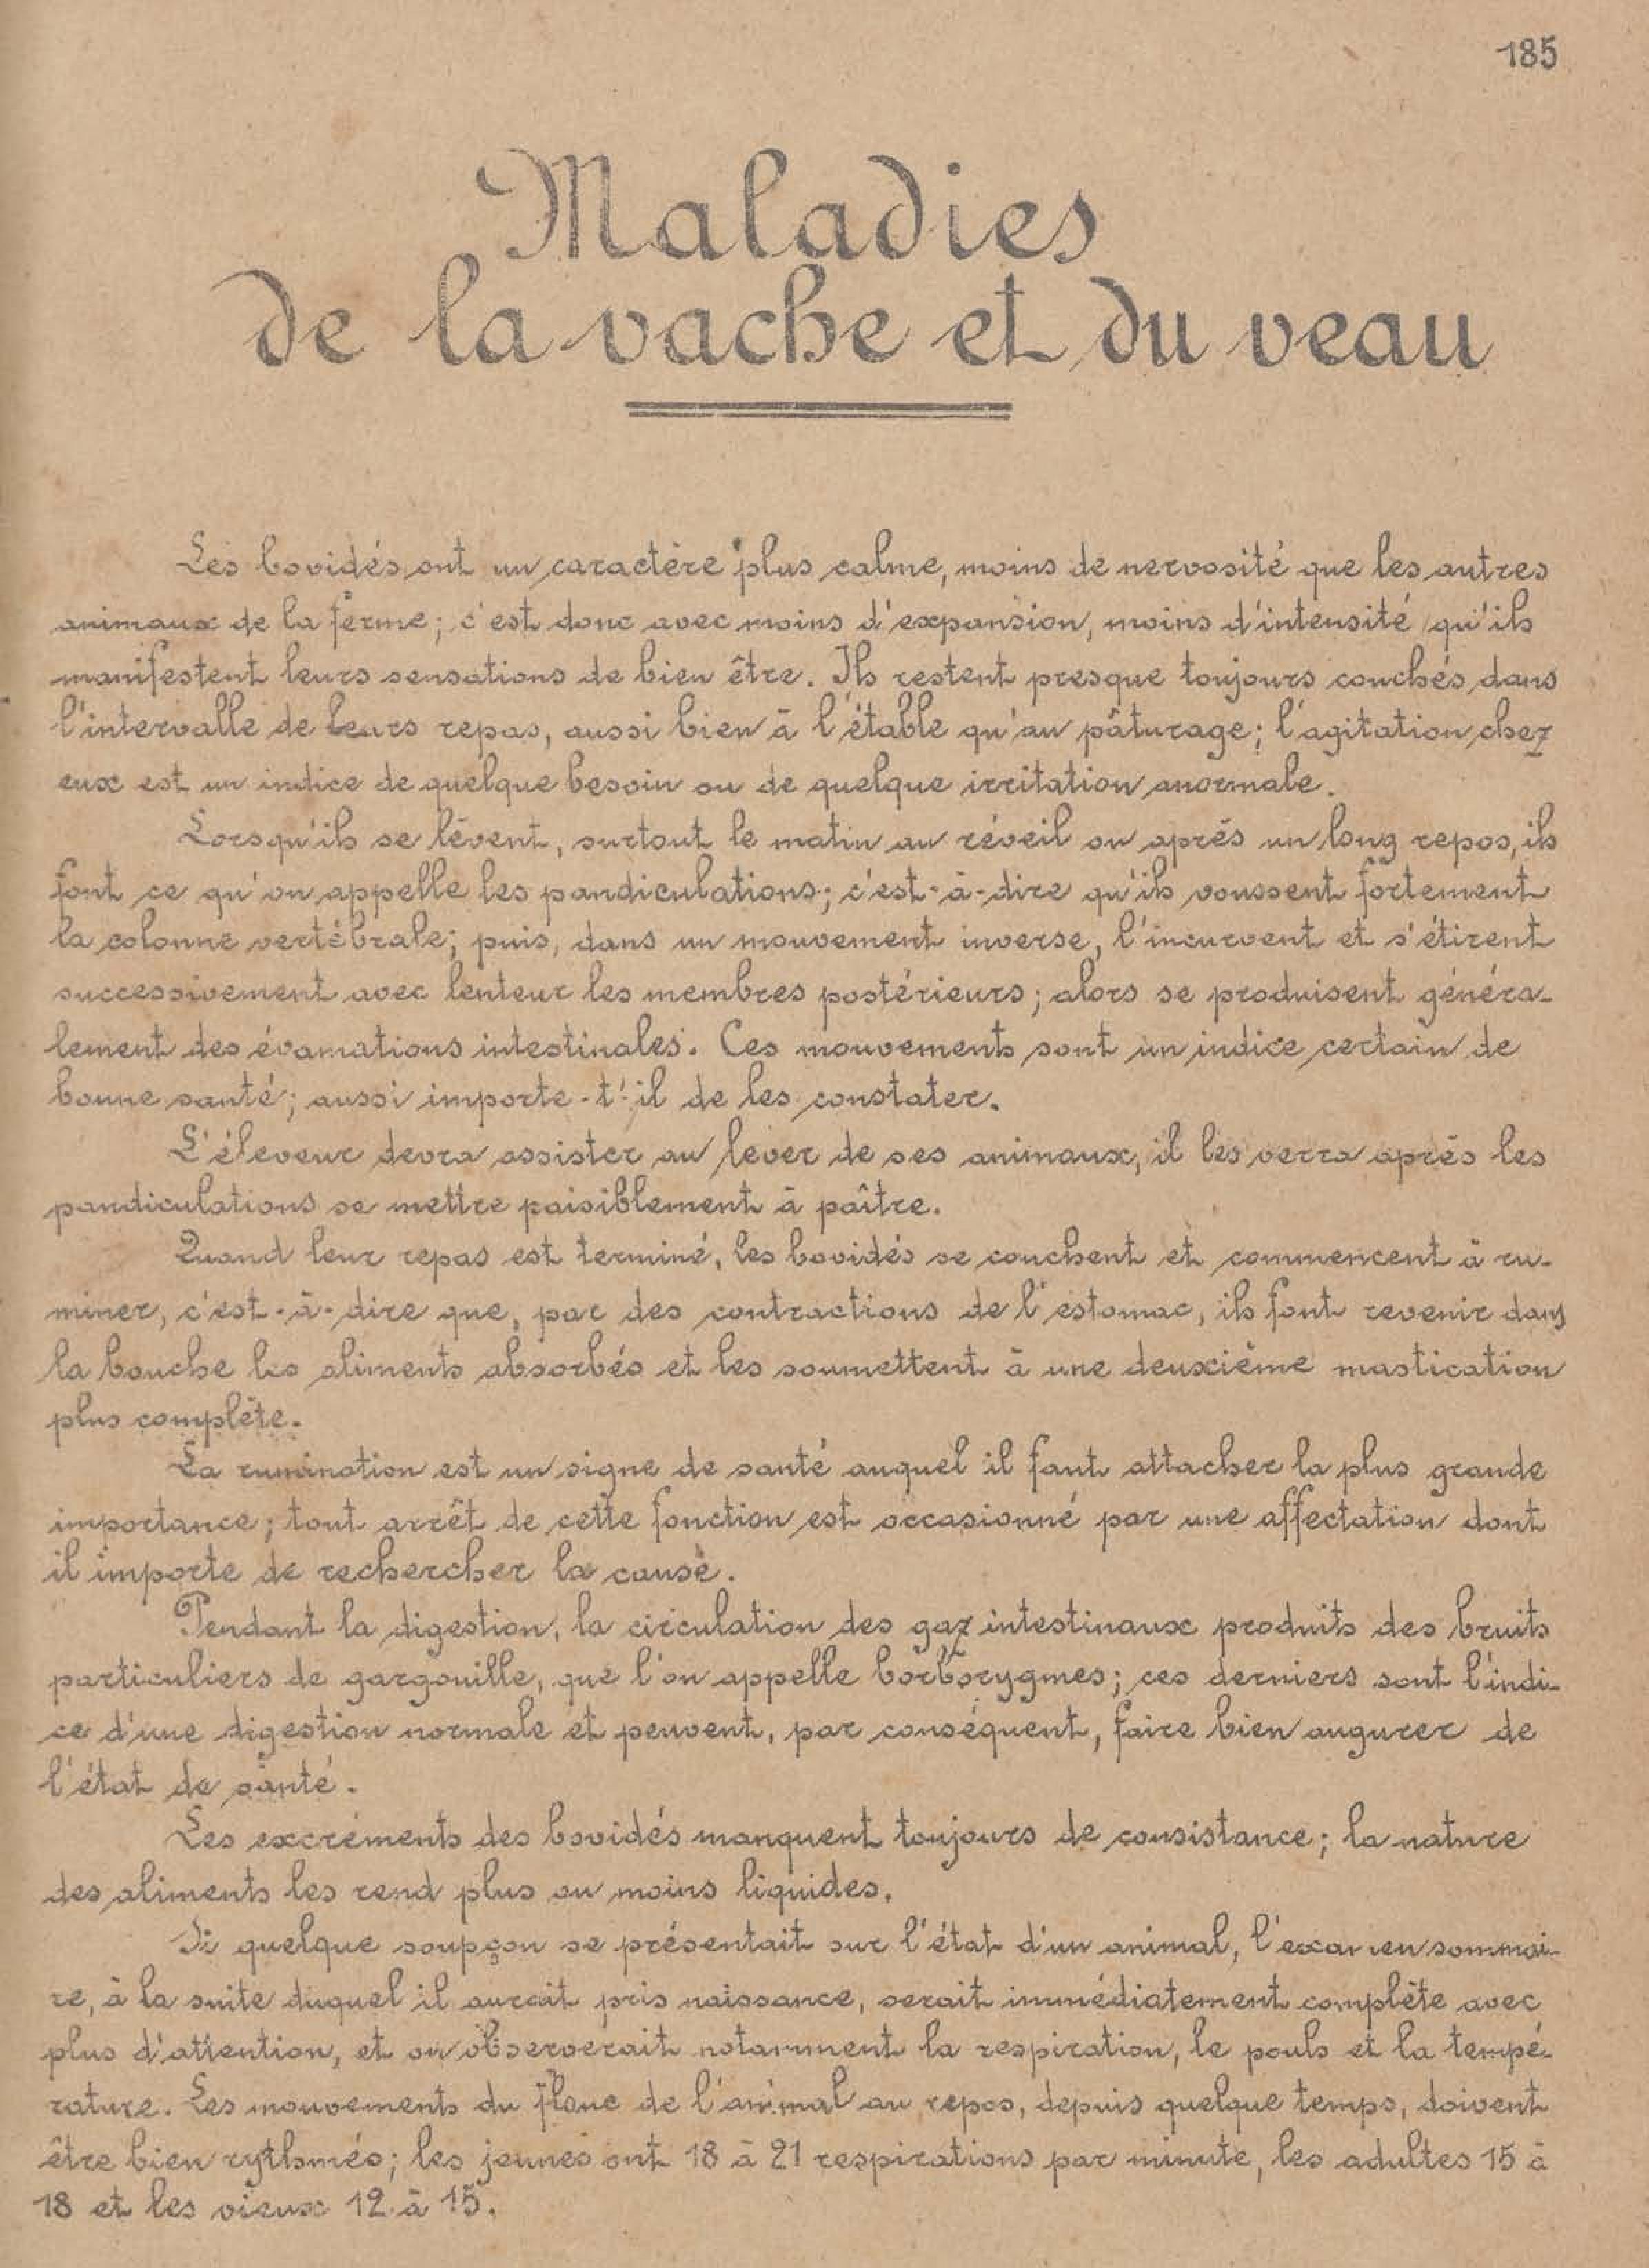 185
Maladies
de la vache et du veau
Les bovidés ont un caractère plus calme, moins de nervosité que les autres
animaux de la ferme; c'est donc avec moins d'expansion, moins d'intensité qu'ils
manifestent leurs sensations de bien être. Ils restent presque toujours couchés dans
l'intervalle de leurs repas, aussi bien à l'étable qu'au pâturage; l'agitation chez
eux est un indice de quelque besoin ou de quelque irritation anormale.
Lorsqu'ils se lèvent, surtout le matin au réveil ou après un long repos, ils
font ce qu'on appelle les pandiculations; c'est-à-dire qu'ils voussent fortement
la colonne vertébrale; puis, dans un mouvement inverse, l'incurvent et s'étirent
successivement avec lenteur les membres postérieurs; alors se produisent généra-
lement des évamations intestinales. Ces mouvements sont un indice certain de
bonne santé; aussi importe-t'il de les constater.
L'éleveur devra assister au lever de ses animaux, il les verra après les
pandiculations se mettre paisiblement à paître.
Quand leur repas est terminé, les bovidés se couchent et commencent à ru-
miner, c'est-à-dire que, par des contractions de l'estomac, ils font revenir dans
la bouche les aliments absorbés et les soumettent à une deuxième mastication
plus complète.
La rumination est un signe de santé auquel il faut attacher la plus grande
importance; tout arrêt de cette fonction est occasionné par une affectation dont
il importe de rechercher la cause.
Pendant la digestion, la circulation des gaz intestinaux produits des bruits
particuliers de gargouille, que l'on appelle borborygmes; ces derniers sont l'indi-
ce d'une digestion normale et peuvent, par conséquent, faire bien augurer de
l'état de santé.
Les excréments des bovidés manquent toujours de consistance; la nature
des aliments les rend plus ou moins liquides.
Si quelque soupçon se présentait sur l'état d'un animal, l'examen sommai-
re, à la suite duquel il aurait pris naissance, serait immédiatement complète avec
plus d'attention, et on observerait notamment la respiration, le pouls et la tempé-
rature. Les mouvements du flanc de l'animal au repos, depuis quelque temps, doivent
être bien rythmés; les jeunes ont 18 à 21 respirations par minute, les adultes 15 à
18 et les vieux 12 à 15.